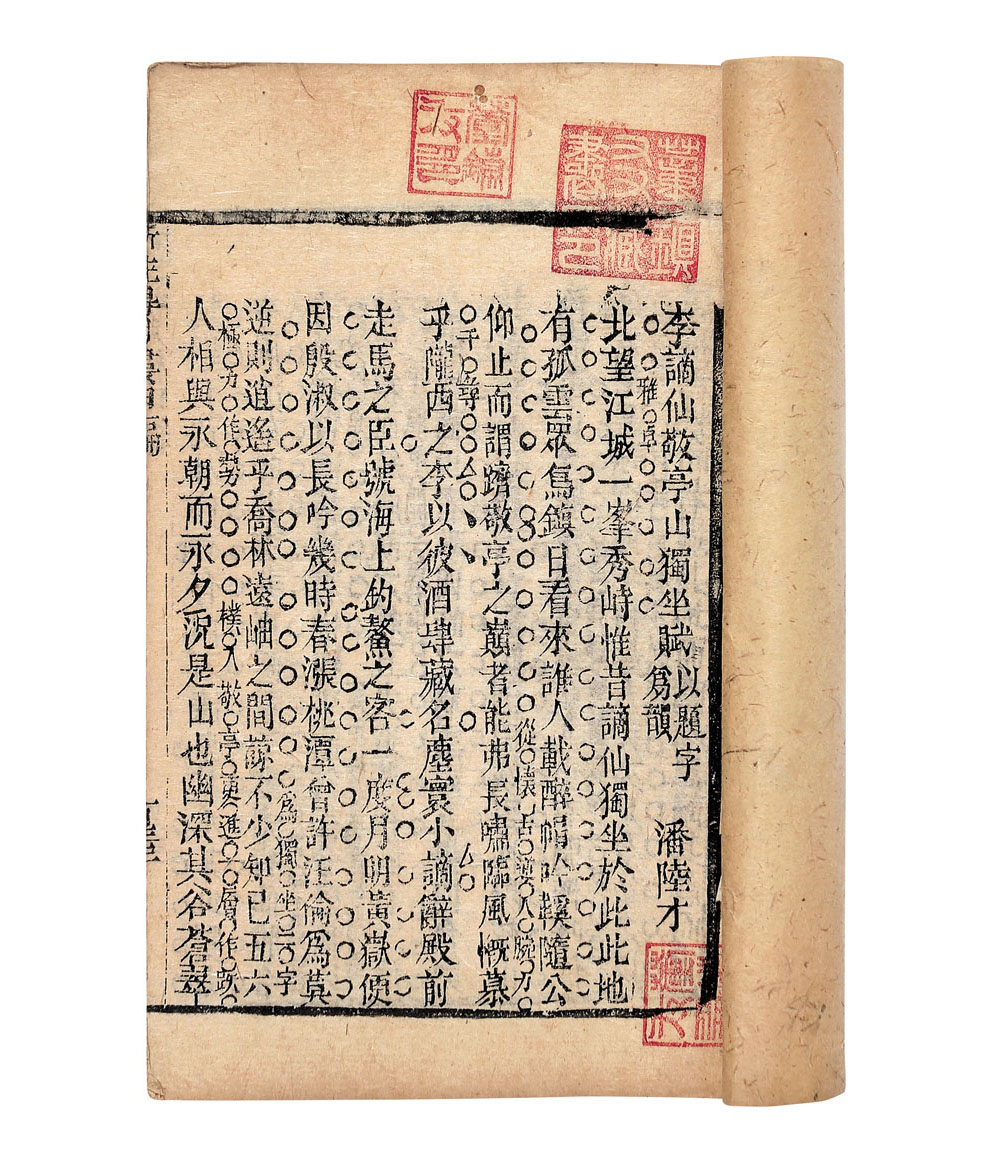 李謫仙敬亭山獨坐賦以題字爲韻 潘陸才
雅卓
北望江城一峯秀峙惟昔謫仙獨坐於此此地
有孤雲眾鳥鎮日看來誰人載醉帽吟鞵隨公
從懷古婆入腕力
仰止而謂躋敬亭之巔者能弗長嘯臨風慨慕
千尋
乎隴西之李以彼酒肆藏名塵寰小謫辭殿前
走馬之臣號海上釣鰲之客一度月明黃嶽便
因殷淑以長吟幾時春漲桃潭曾許汪倫爲莫
爲獨坐二字
逆則逍遙乎喬林遠岫之間諒不少知己五六
極力作勢樸入敬亭更進一層作跌
人相與永朝而永夕況是山也幽深其谷蒼翠